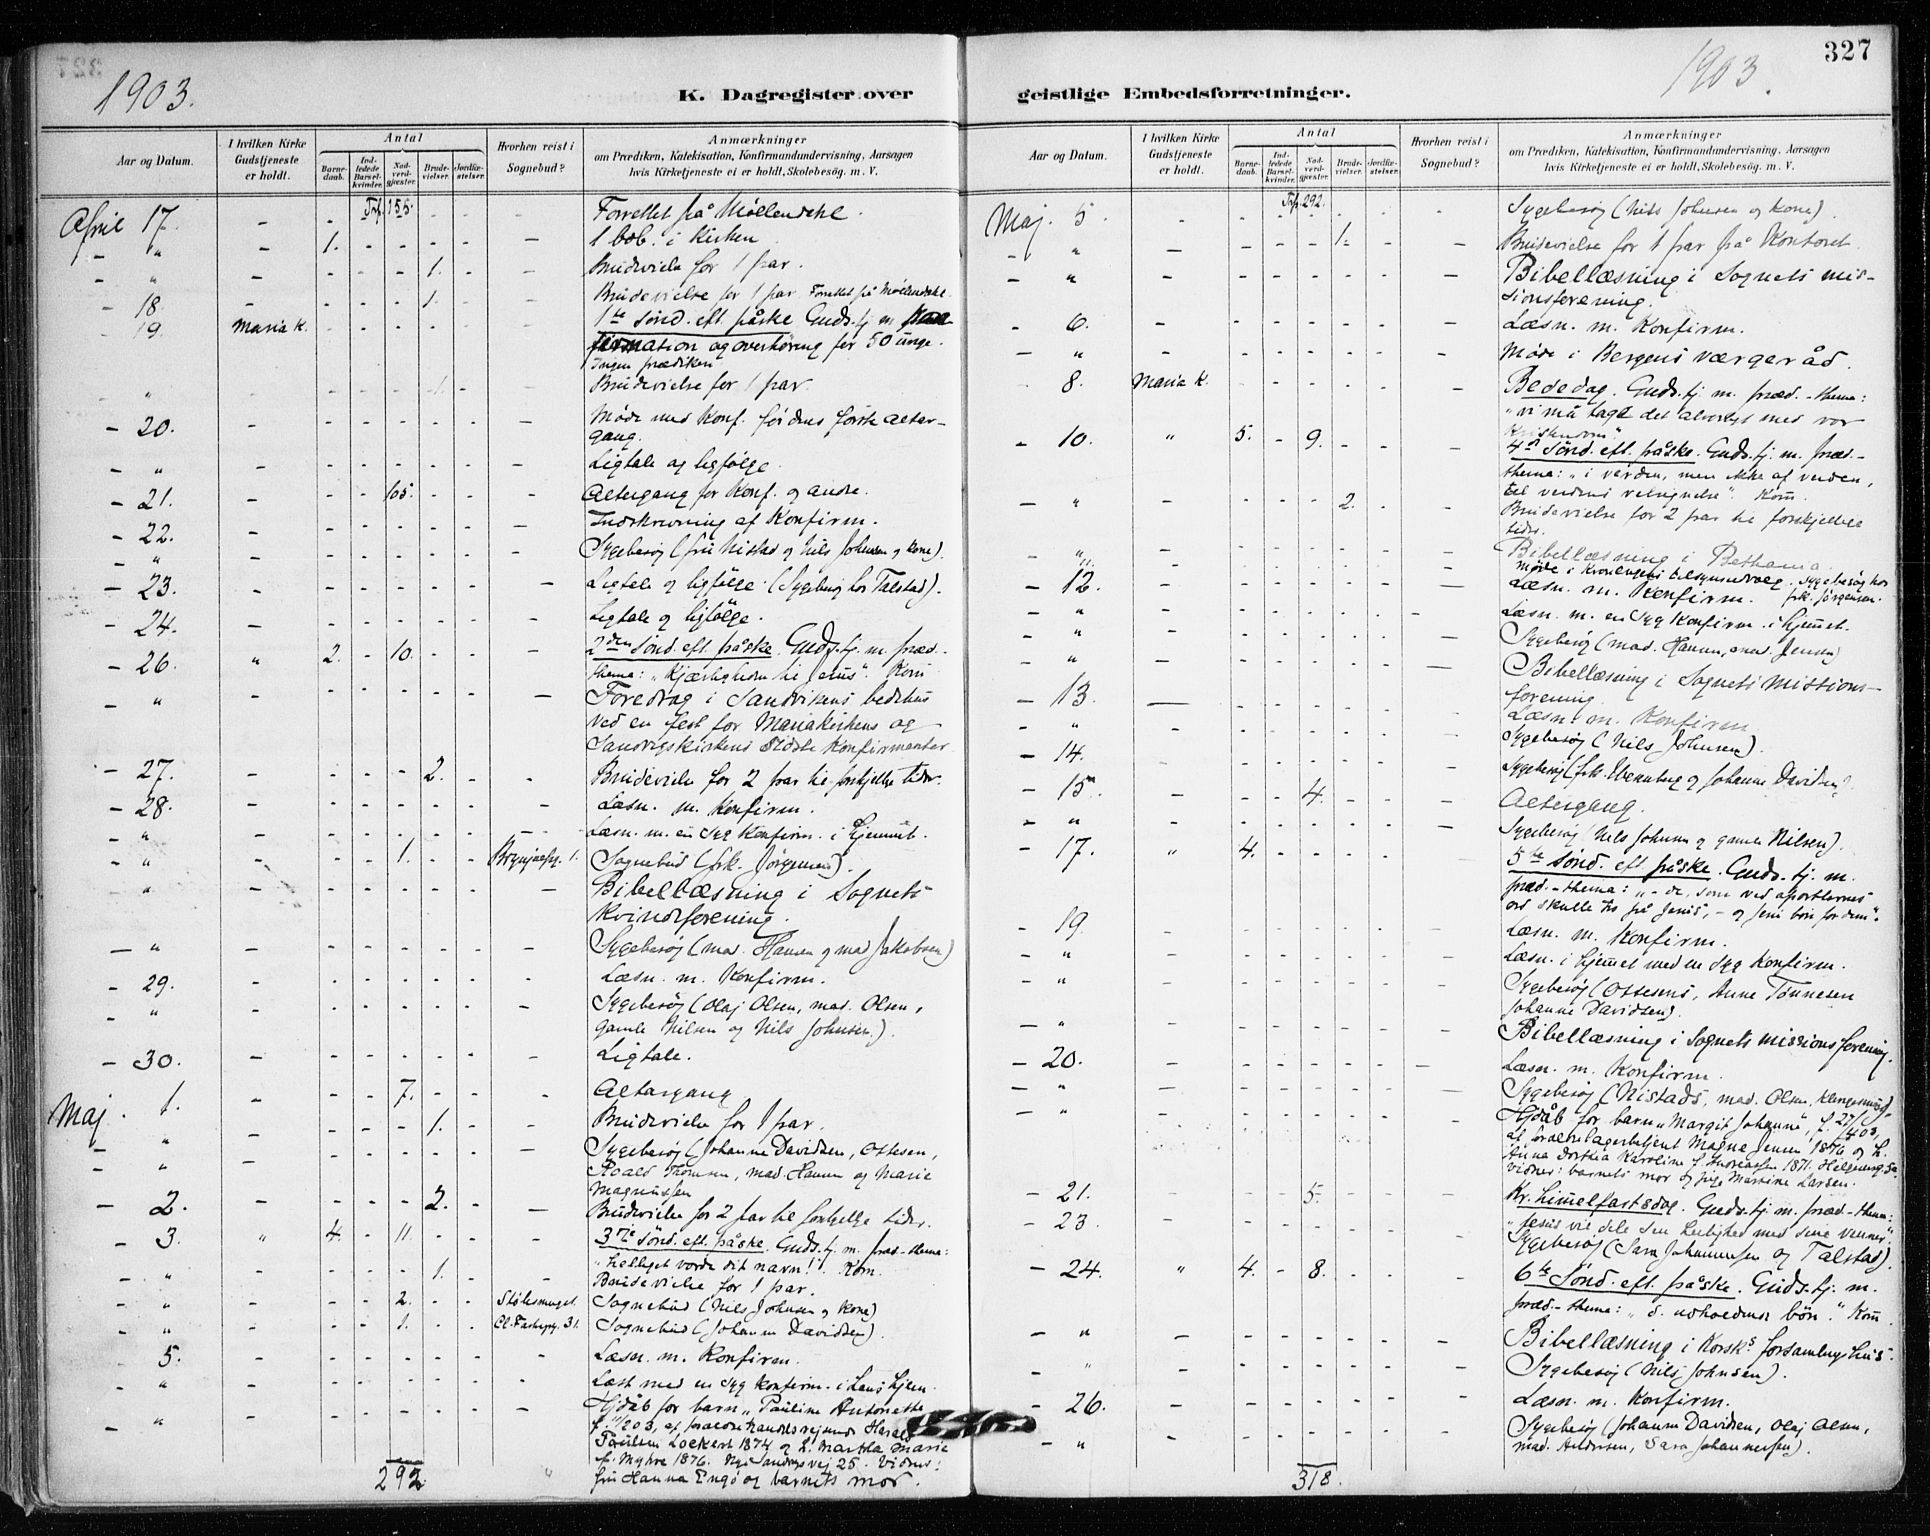 327
1903.
K. Dagregister over
Aar og Datum.
I hvilken Kirke Gudstjeneste er holdt.
Antal
Barnedaab.
Indledede Barselkvinder.
Nadverdgjester.
Brudevielser.
Jordfæstelser.
Hvorhen reist i Sognebud?
Anmærkninger
om Prædiken, Katekisation, Konfirmandundervisning, Aarsagen
hvis Kirketjeneste ei er holdt, Skolebesøg. m. V.
Trf. 155.
April 17. Forrettet på Møllendahl.
" 1. 1 bab. i Kirken
" 1. Brudevielse for 1 par.
18. 1. Brudevielse for 1 par. Forrettet på Møllendahl.
19. Maria K. 1ste sønd. eft. påske. Guds.tj. m.
firmation og overhøring for 50 unge.
Ingen prædiken
" 1. Brudevielse for 1 par.
20. Møde med Konf. før deres første alter-
gang.
" Ligtale og ligfølge.
21. 105. Altergang for Konf. og andre.
22. Indskrivning af Konfirm.
" Sygebesøg (fru Nistad og Nils Johnsen og kone).
23. Ligtale og ligfølge. (Sygebesøg hos Talstad).
24. Ligtale og ligfølge.
26. " 2. 10. 2den sønd. eft. påske. Guds.tj. m. præd.-
thema: "Kjærligheden til Jesus". Kom
" Foredrag i Sandvikens bedehus
ved en fest for Mariakirkens og
Sandvigskirkens sidste Konfirmanter.
27. 2. Brudevielse for 2 par til forskjellige tider.
28. Læsn. m. Konfirm.
" Læsn. m. en syg Konfirm. i hjemmet.
" 1. 1. Sognebud (frk. Jørgensen).
" Bibellæsning i Sognets
Kvindeforening.
" Sygebesøg (mad. Hansen og mad Jakobsen)
29. Læsn. m. Konfirm.
" Sygebesøg (Olaj Olsen, mad. Olsen,
gamle Nilsen og Nils Johnsen.).
30. Ligtale.
Maj. 1. 7. Altergang
" 1. Brudevielse for 1 par.
" Sygebesøg (Johanne Davidsen, Ottesen,
Roald Thomsen, mad Hansen og Marie
Magnussen
2. 2. Brudevielse for 2 par til forskjellige tider.
3. " 4. 11. 3die sønd. eft. påske. Guds.tj. m. præd-thema:
"Helliget vorde dit navn!". Kom.
" 1. Brudevielse for 1 par.
" 2. Stølesmuget. Sognebud (Nils Johnsen og kone)
" 1. 31. Sognebud (Johanne Davidsen).
5. Læsn. m. Konfirm.
" Læst med en syg konfirm. i hans hjem.
" Hjdåb for barn "Pauline Antonette
f. /203, af forældre Harald
Paulsen Lockert 1874 og h. Martha Marie
f. Myhre 1876. Nye Sandvigsvej 25. Vidner:
fru Hanna Engø og barnets mor.
292
1903.
geistlige Embedsforretninger.
Aar og Datum.
I hvilken Kirke Gudstjeneste er holdt.
Antal
Barnedaab.
Indledede Barselkvinder.
Nadverdgjester.
Brudevielser.
Jordfæstelser.
Hvorhen reist i Sognebud?
Anmærkninger
om Prædiken, Katekisation, Konfirmandundervisning, Aarsagen
hvis Kirketjeneste ei er holdt, Skolebesøg. m. V.
Trf. 292.
Maj. 5 Sygebesøg (Nils Johnsen og kone).
" 1. Brudevielse for 1 par på Kontoret.
" Bibellæsning i Sognets mis-
sionsforening.
6. Læsn. m. Konfirm.
" Møde i Bergens værgeråd.
8. Maria K. Bededag. Guds.tj. m. præd.-thema:
"vi må tage det alvorligt med vor
Kristendom".
10. " 5. 9. 4de sønd. eft. påske. Guds.tj. m. præd.-
thema: "i verden, men ikke af verden,
til verdens velsignelse". Kom.
" 2. Brudevielse for 2 par til forskjellige
tider.
" Bibellæsning i Bethania.
" Møde i tilsynsudvalg. Sygebesøg hos
12. Læsn. m. Konfirm. frk. Jørgensen.
" Læsn. m. en syg Konfirm. i hjemmet.
" Sygebesøg (mad. Hansen, mad. Jensen)
" Bibellæsning i Sognets missions-
forening.
13. Læsn. m. Konfirm
" Sygebesøg (Nils Johnsen).
14. Sygebesøg (frk. og Johanne Davidsen)
15. 4. Altergang.
" Sygebesøg (Nils Johnsen og gamle Nilsen).
17. " 4. 5te sønd. eft. påske. Guds.tj. m.
præd.-thema: "- de, som ved apostlernes
ord skulle tro på Jesus, - og Jesu bøn for dem".
19. Læsn. m. Konfirm.
" Læsn. i hjemmet med en syg Konfirm.
" Sygebesøg (Ottesens, Anne Tønnesen
Johanne Davidsen).
" Bibellæsning i Sognets missionsforening.
20. Læsn. m. Konfirm.
" Sygebesøg (Nistads, mad. Olsen,
" Hjdåb for barn "Margit Johanne", f. 27/403,
af forældre lagerbetjent Magne Jensen 1876 og h.
Anna Dorthea Karoline f. 1871.
vidner: barnets mor og Martine Larsen.
21. 5. Kr. himmelfartsdag. Guds.tj. m. præd-thema:
"Jesus vil dele sin herlighed med sine venner"
23. Sygebesøg (Sara Johannessen og Talstad).
24. " 4. 8. 6te sønd. eft. påske. Guds.tj. m.
præd.-thema: "d. udholdende bøn". Kom
" Bibellæsning i forsamlingshus.
" Sygebesøg (Nils Johnsen).
26. Læsn. m. Konfirm.
" Sygebesøg (Johanne Davidsen, Olaj Olsen,
mad. Andersen, Sara Johannessen).
318.